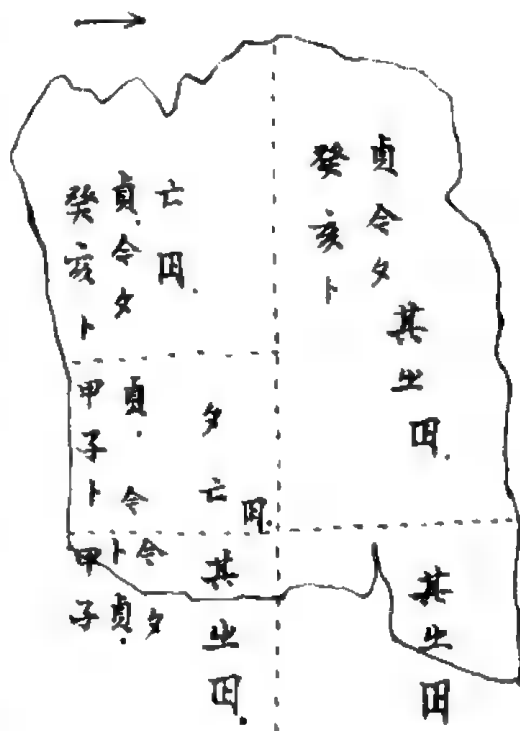 癸亥卜
貞.今夕
亡𡆥.
癸亥卜
貞今夕
其㞢
𡆥.
甲子卜
貞.今
夕亡
𡆥.
甲子
卜貞.
今夕
其㞢𡆥.
其㞢𡆥